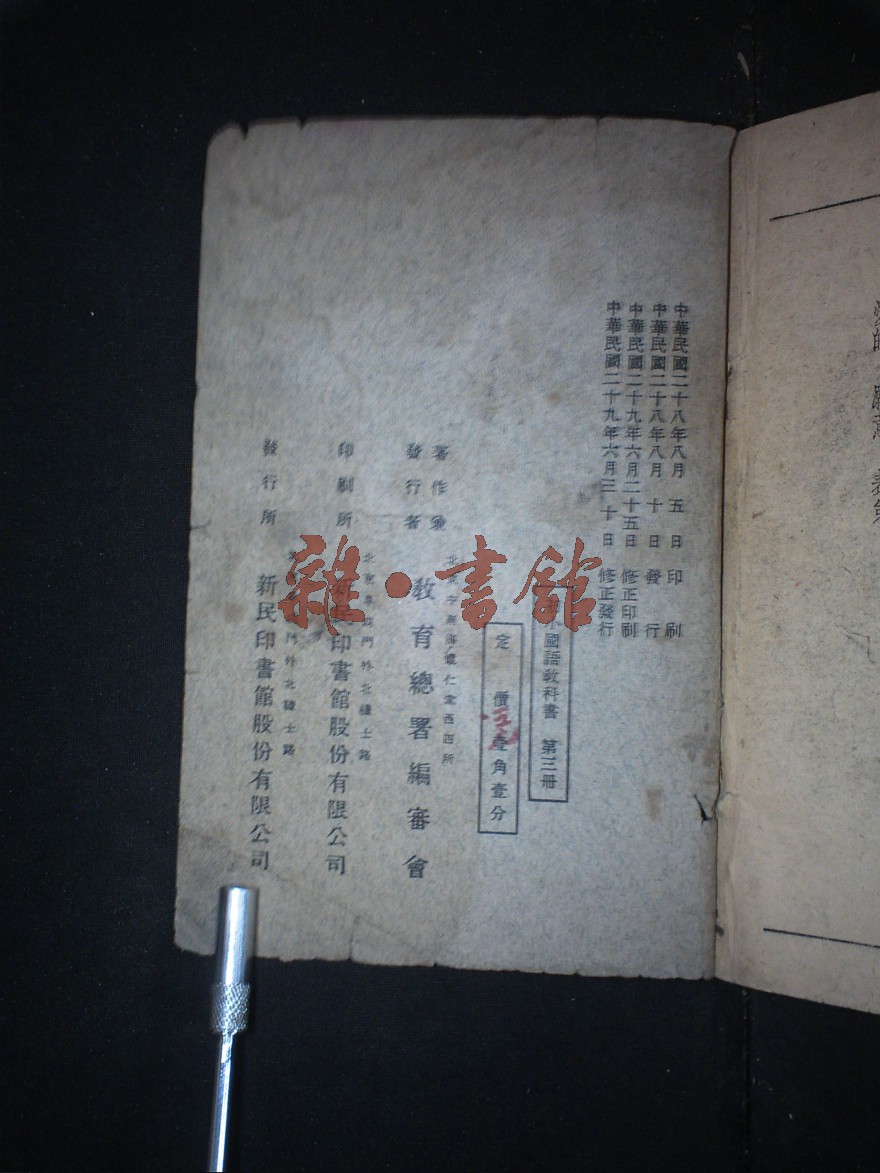 中華民國二十八年八月五日印刷
中華民國二十八年八月十日發行
中華民國二十九年六月二十五日修正印刷
中華民國二十九年六月三十日修正發行
小國語教科書 第三冊
定價壹角壹分
著作兼
發行者
仁堂西四所
教育總署編審會
印刷所
門外北禮士路
新民印書館股份有限公司
發行所
門外北禮士路
新民印書館股份有限公司
雜·書館